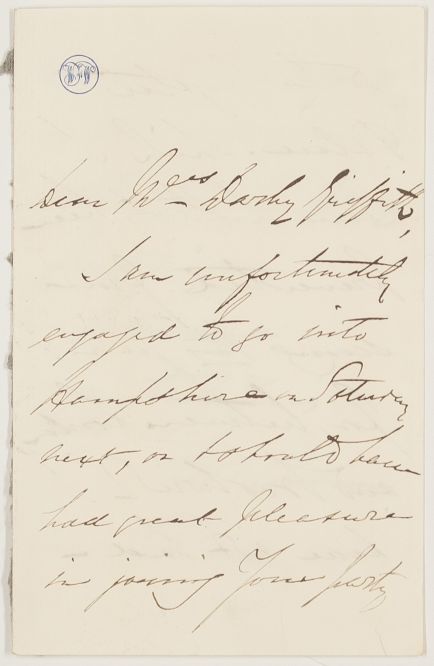 Dear Mrs Darby Griffith,
I am unfortunately
engaged to go into
Hampshire on Saturday
next, or I should have
had great pleasure
in joining your party